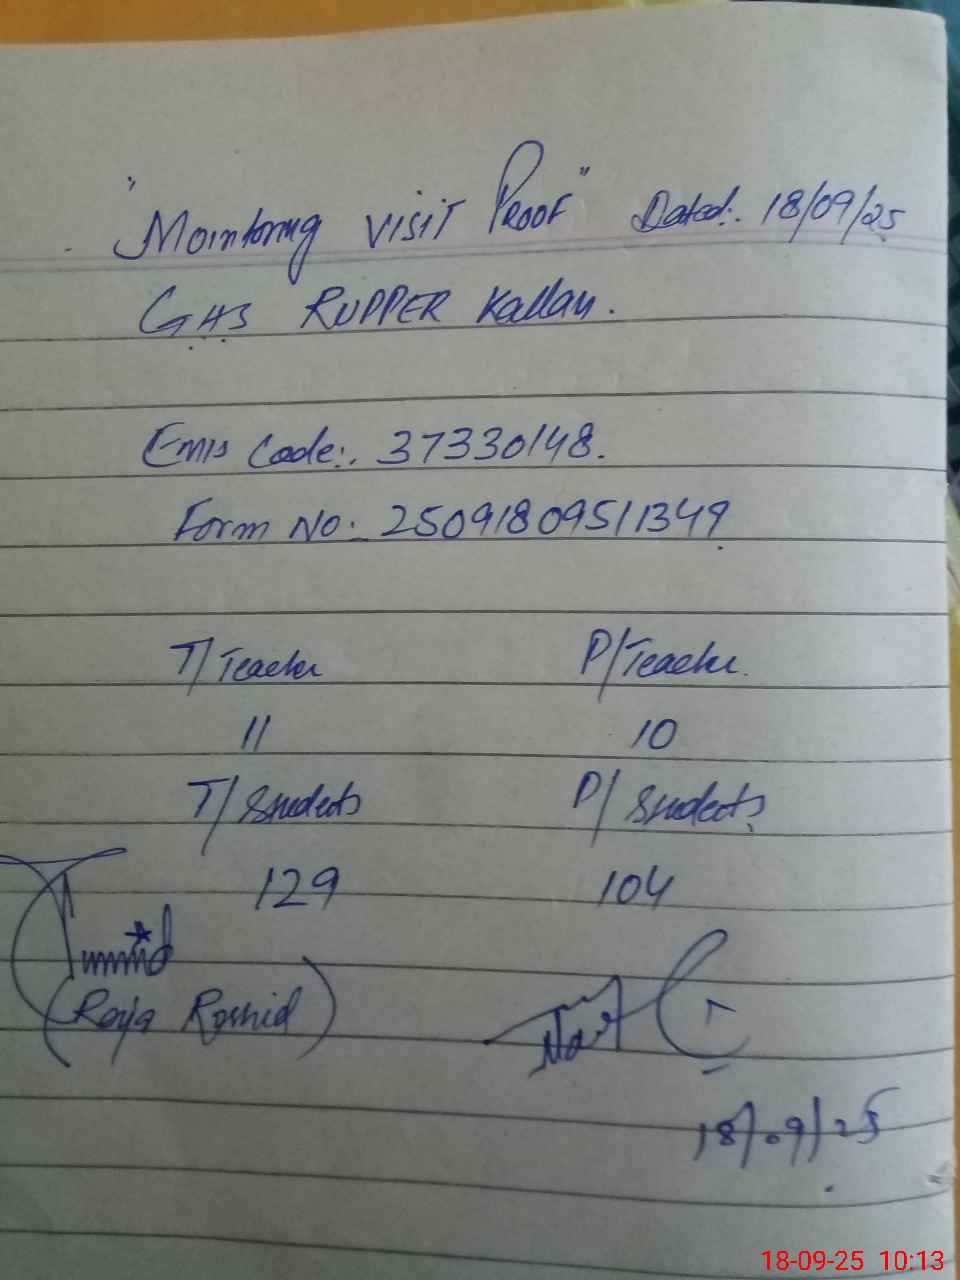 "Monitoring VISIT PROOF" Dated:. 18/09/25
GHS RUPPER Kallan.
Emis Code:. 37330148.
Form No:- 25091809511349
T/Teacher P/Teacher.
11 10
T/Students P/Students
129 104
(Raja Rashid)
18/09/25
18-09-25 10:13